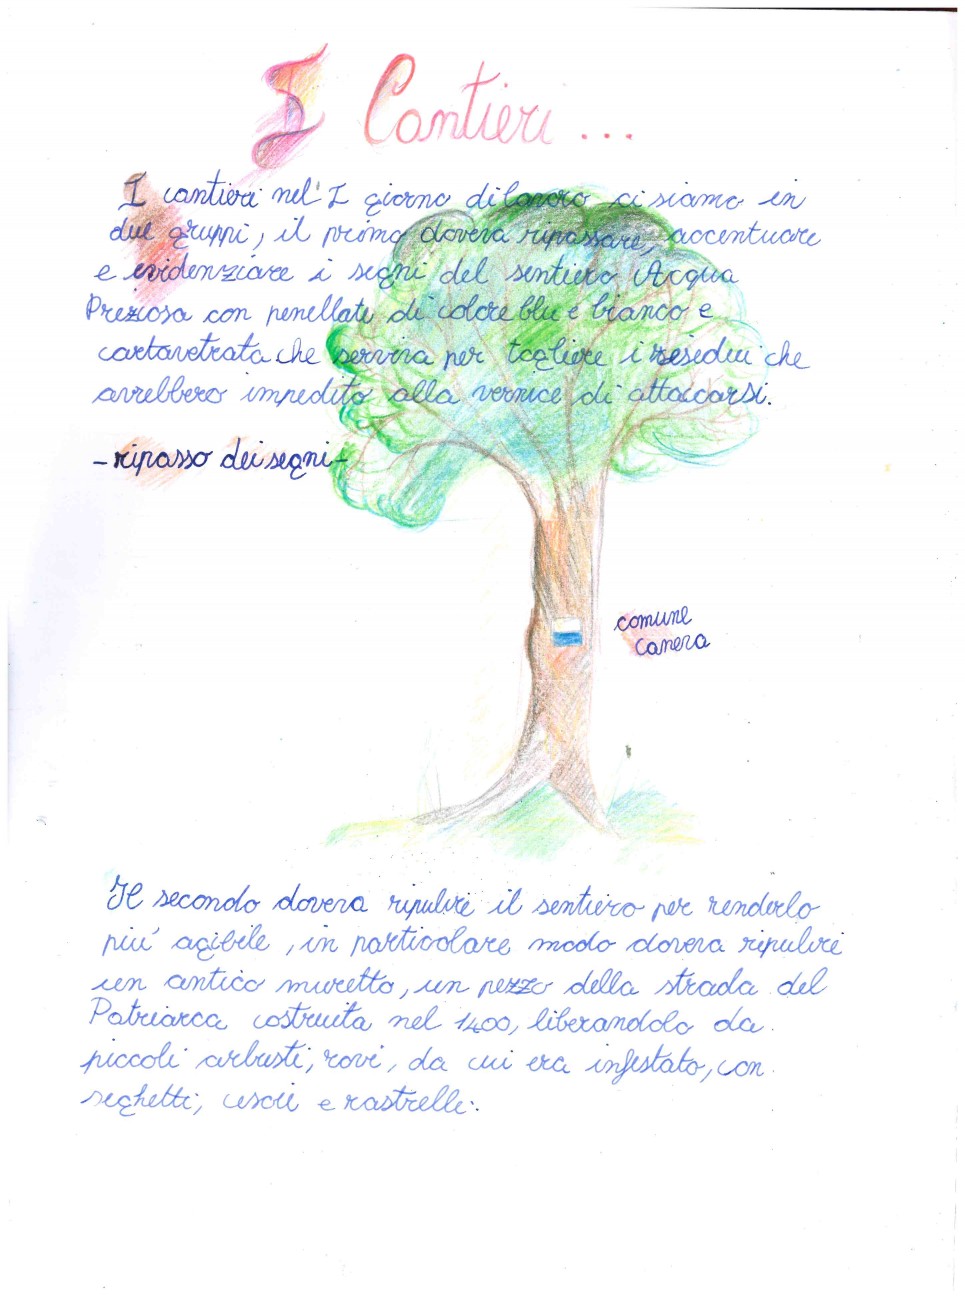 I Cantieri...
I cantieri nel I giorno di lavoro ci siamo in
due gruppi, il primo doveva ripassare, accentuare
e evidenziare i segni del sentiero Acqua
Preziosa con penellate di colore blu e bianco e
cartavetrata che serviva per togliere i residui che
avrebbero impedito alla vernice di attaccarsi.
-ripasso dei segni-
comune
canera
Il secondo doveva ripulire il sentiero per renderlo
piu' agibile, in particolare modo doveva ripulire
un antico muretto, un pezzo della strada del
Patriarca costruita nel 1400, liberandola da
piccoli arbusti, rovi, da cui era infestato, con
seghetti, e rastrelli.